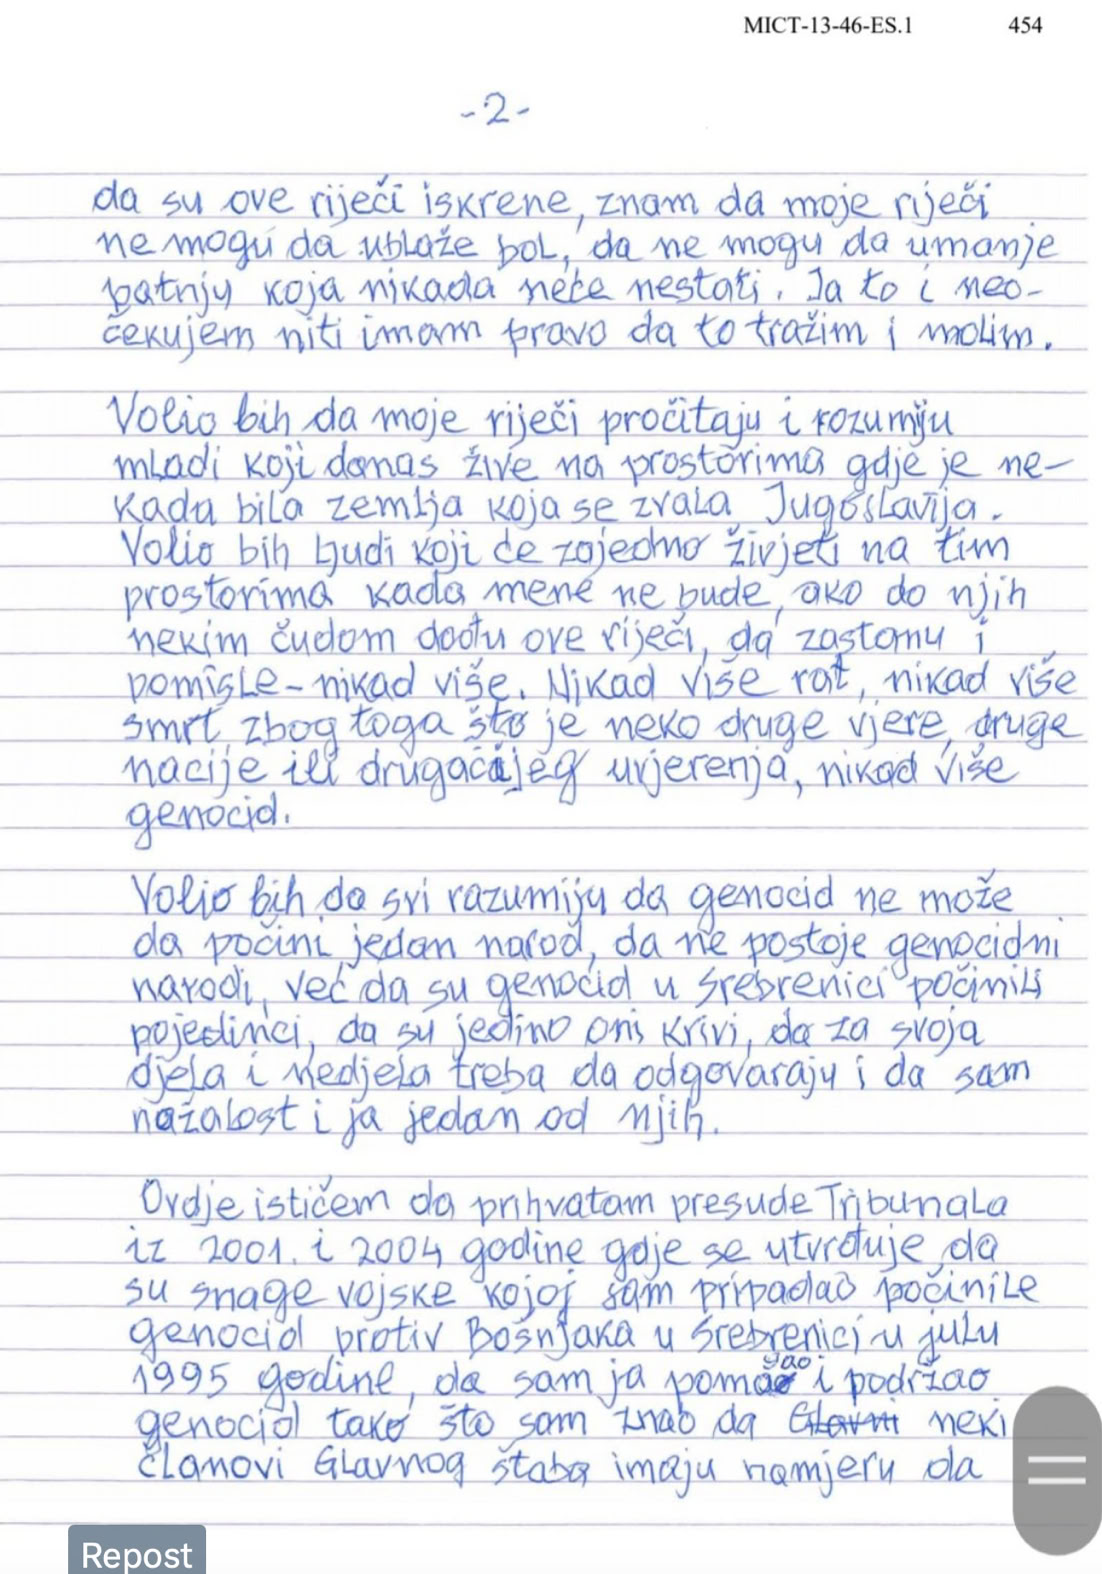 MICT-13-46-ES.1 454
-2-
da su ove riječi iskrene, znam da moje riječi
ne mogu da ublaže bol, da ne mogu da umanje
patnju koja nikada neće nestati. Ja to i neo-
čekujem niti imam pravo da to tražim i molim.
Volio bih da moje riječi pročitaju i rozumiju
mladi koji danas žive na prostorima gdje je ne-
kada bila zemlja koja se zvala Jugoslavija.
Volio bih ljudi koji će zajedno živjeti na tim
prostorima kada mene ne bude, ako do njih
nekim čudom dođu ove riječi, da zastanu i
pomisle - nikad više. Nikad više rat, nikad više
smrt zbog toga što je neko druge vjere, druge
nacije ili drugačijeg uvjerenja, nikad više
genocid.
Volio bih da svi razumiju da genocid ne može
da počini jedan narod, da ne postoje genocidni
narodi, već da su genocid u Srebrenici počinili
pojedinci, da su jedino oni krivi, da za svoja
djela i nedjela treba da odgovaraju i da sam
nažalost i ja jedan od njih.
Ovdje ističem da prihvatam presude Tribunala
iz 2001. i 2004 godine gdje se utvrđuje da
su snage vojske kojoj sam pripadao počinile
genocid protiv Bošnjaka u Srebrenici u julu
1995 godine, da sam ja pomagao i podržao
genocid tako što sam znao da Glavni neki
članovi Glavnog štaba imaju namjeru da
Repost